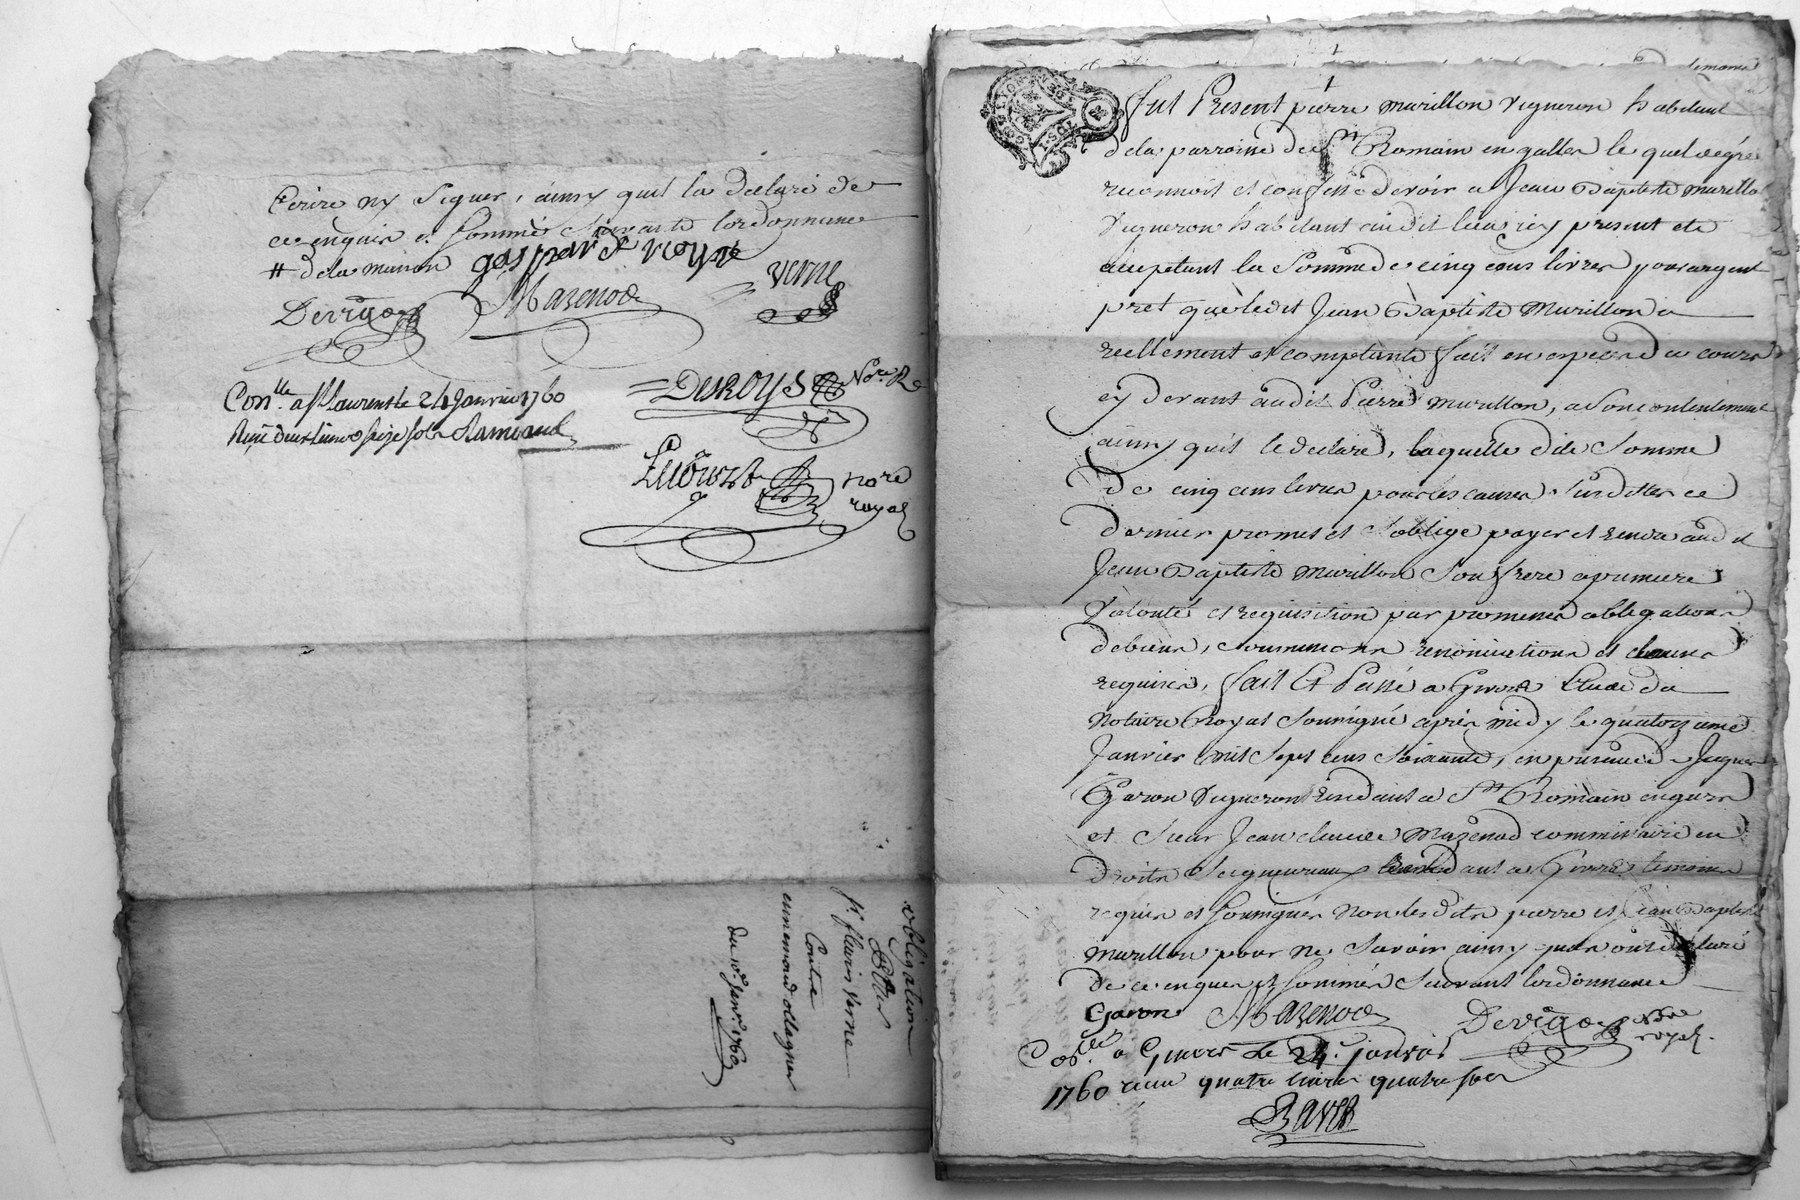 Ecrire ny Signer, ainsy quil la declaré de
ce enquis et sommé suivant lordonnance
# de la maison gaspard royre verne
Devigo Mazenod
DESROYS No.re R.
Con.lle a St Laurent le 24 Janvier 1760
Reçu deux livres seize sols
nore
royal
obligation
Sr. fleury Verne
Contre
annemond ollagnier
du 10e. janv. 1760
temoins
fut Present pierre murillon vigneron habitant
de la parroisse de St Romain en galles le quel de gré
reconnoit et confesse devoir a Jean Baptiste murillon
Vigneron habitant audit lieu icy present et
acceptant la Somme de cinq cens livres pour argent
pret que ledit Jean Baptiste Murillon a
reellement et comptant fait en especes de cours
cy devant audit Pierre murillon, a son contentement
ainsy quil le declare, laquelle dite Somme
de cinq cens livres pour les causes Susdittes ce
dernier promet et s'oblige payer et rendre audit
Jean Baptiste Murillon Son frere a premiere
Volonté et requisition par promesses obligations
de biens, soumissions renonciations et clauses
requises, fait Et Passé a Givors Etude du
Notaire Royal Soussigné après midy le quatorzieme
Janvier mil Sept cens Soixante, en presence de Jacques
Garon Vigneron residant a St Romain en gieres
et Sieur Jean claude Mazenod commissaire en
droits Seigneuriaux residant a Givors temoins
requis et soussignés Non lesdits pierre et Jean Baptiste
Murillon pour ne Savoir ainsy quils ont declaré
de ce enquis et sommés Suivant lordonnance
Garon Mazenod Devigo nore
royal.
Con.llé a Givors le 24.e janvier
1760 reçu quatre livres quatre sols
RAVER